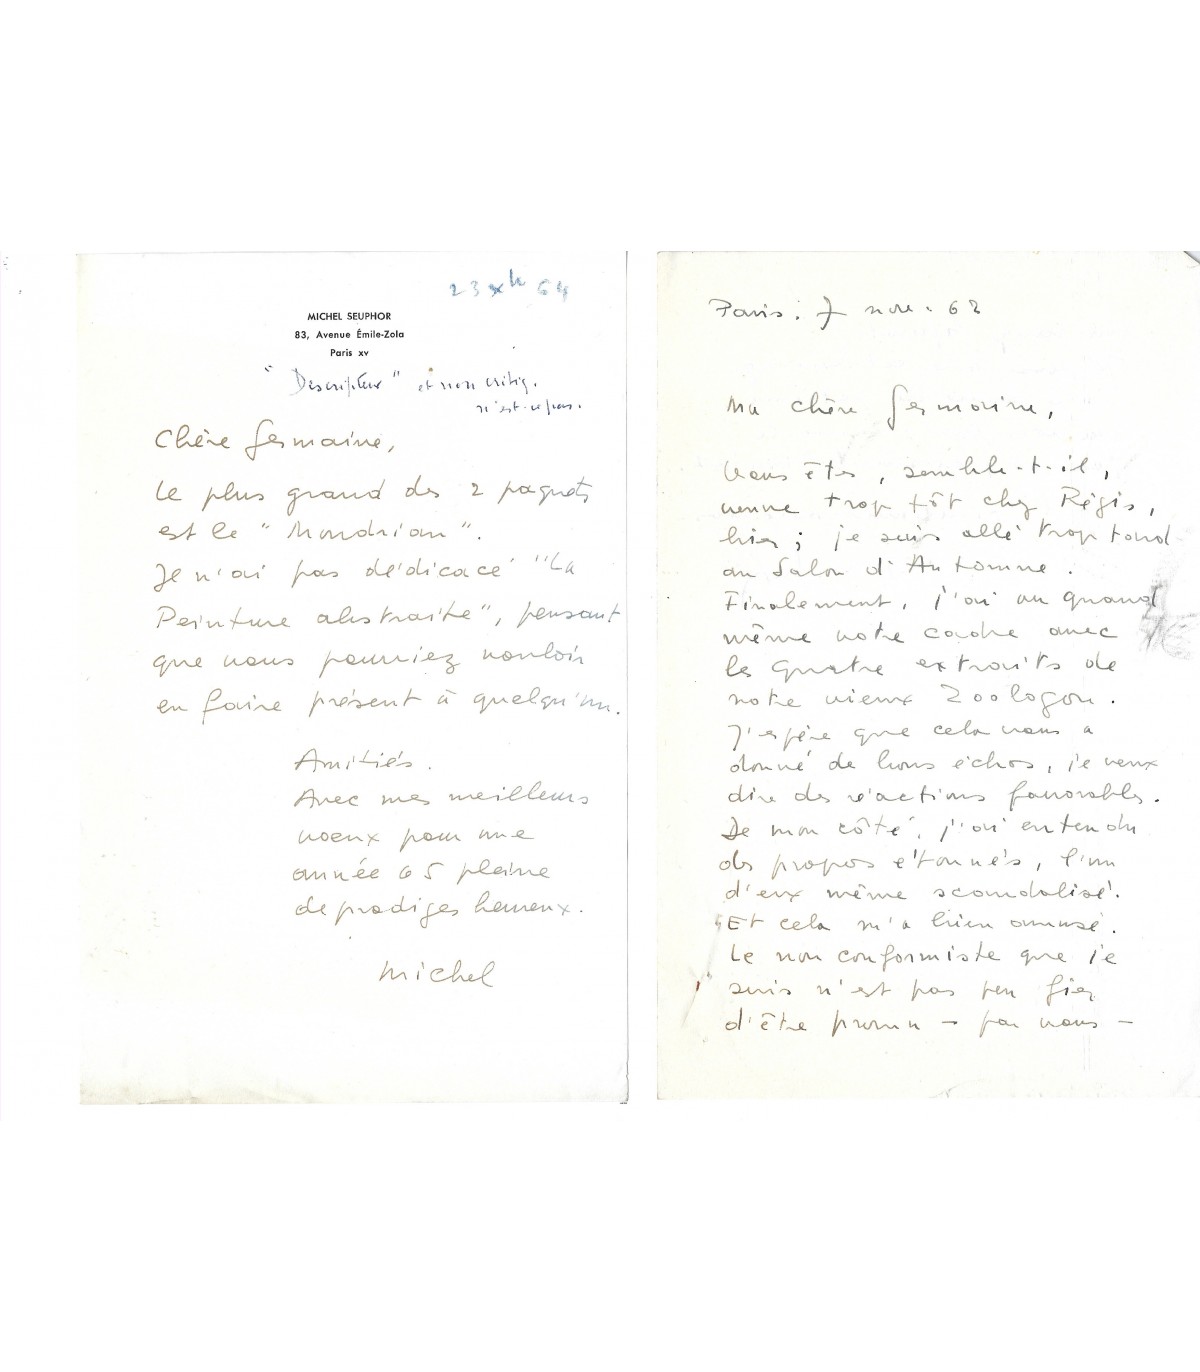 23 XII 64
MICHEL SEUPHOR
83, Avenue Émile-Zola
Paris XV
"Descripteur" et non critiq.
n'est-ce pas.
Chère Germaine,
Le plus grand des 2 paquets
est le "Mondrian".
Je n'ai pas dédicacé "La
Peinture abstraite", pensant
que vous pourriez vouloir
en faire présent à quelqu'un.
Amitiés.
Avec mes meilleurs
voeux pour une
année 65 pleine
de prodiges heureux.
Michel
Paris, 7 nov. 62
Ma chère Germaine,
Vous êtes, semble-t-il,
venue trop tôt chez Régis,
hier ; je suis allé trop tard
au Salon d'Automne.
Finalement, j'ai vu quand
même votre cadre avec
les quatre extraits de
notre vieux Zoologon.
J'espère que cela vous a
donné de bons échos, je veux
dire des réactions favorables.
De mon côté, j'ai entendu
des propos étonnés, l'un
d'eux même scandalisé.
Et cela m'a bien amusé.
Le non conformiste que je
suis n'est pas peu fier
d'être promu - par vous -